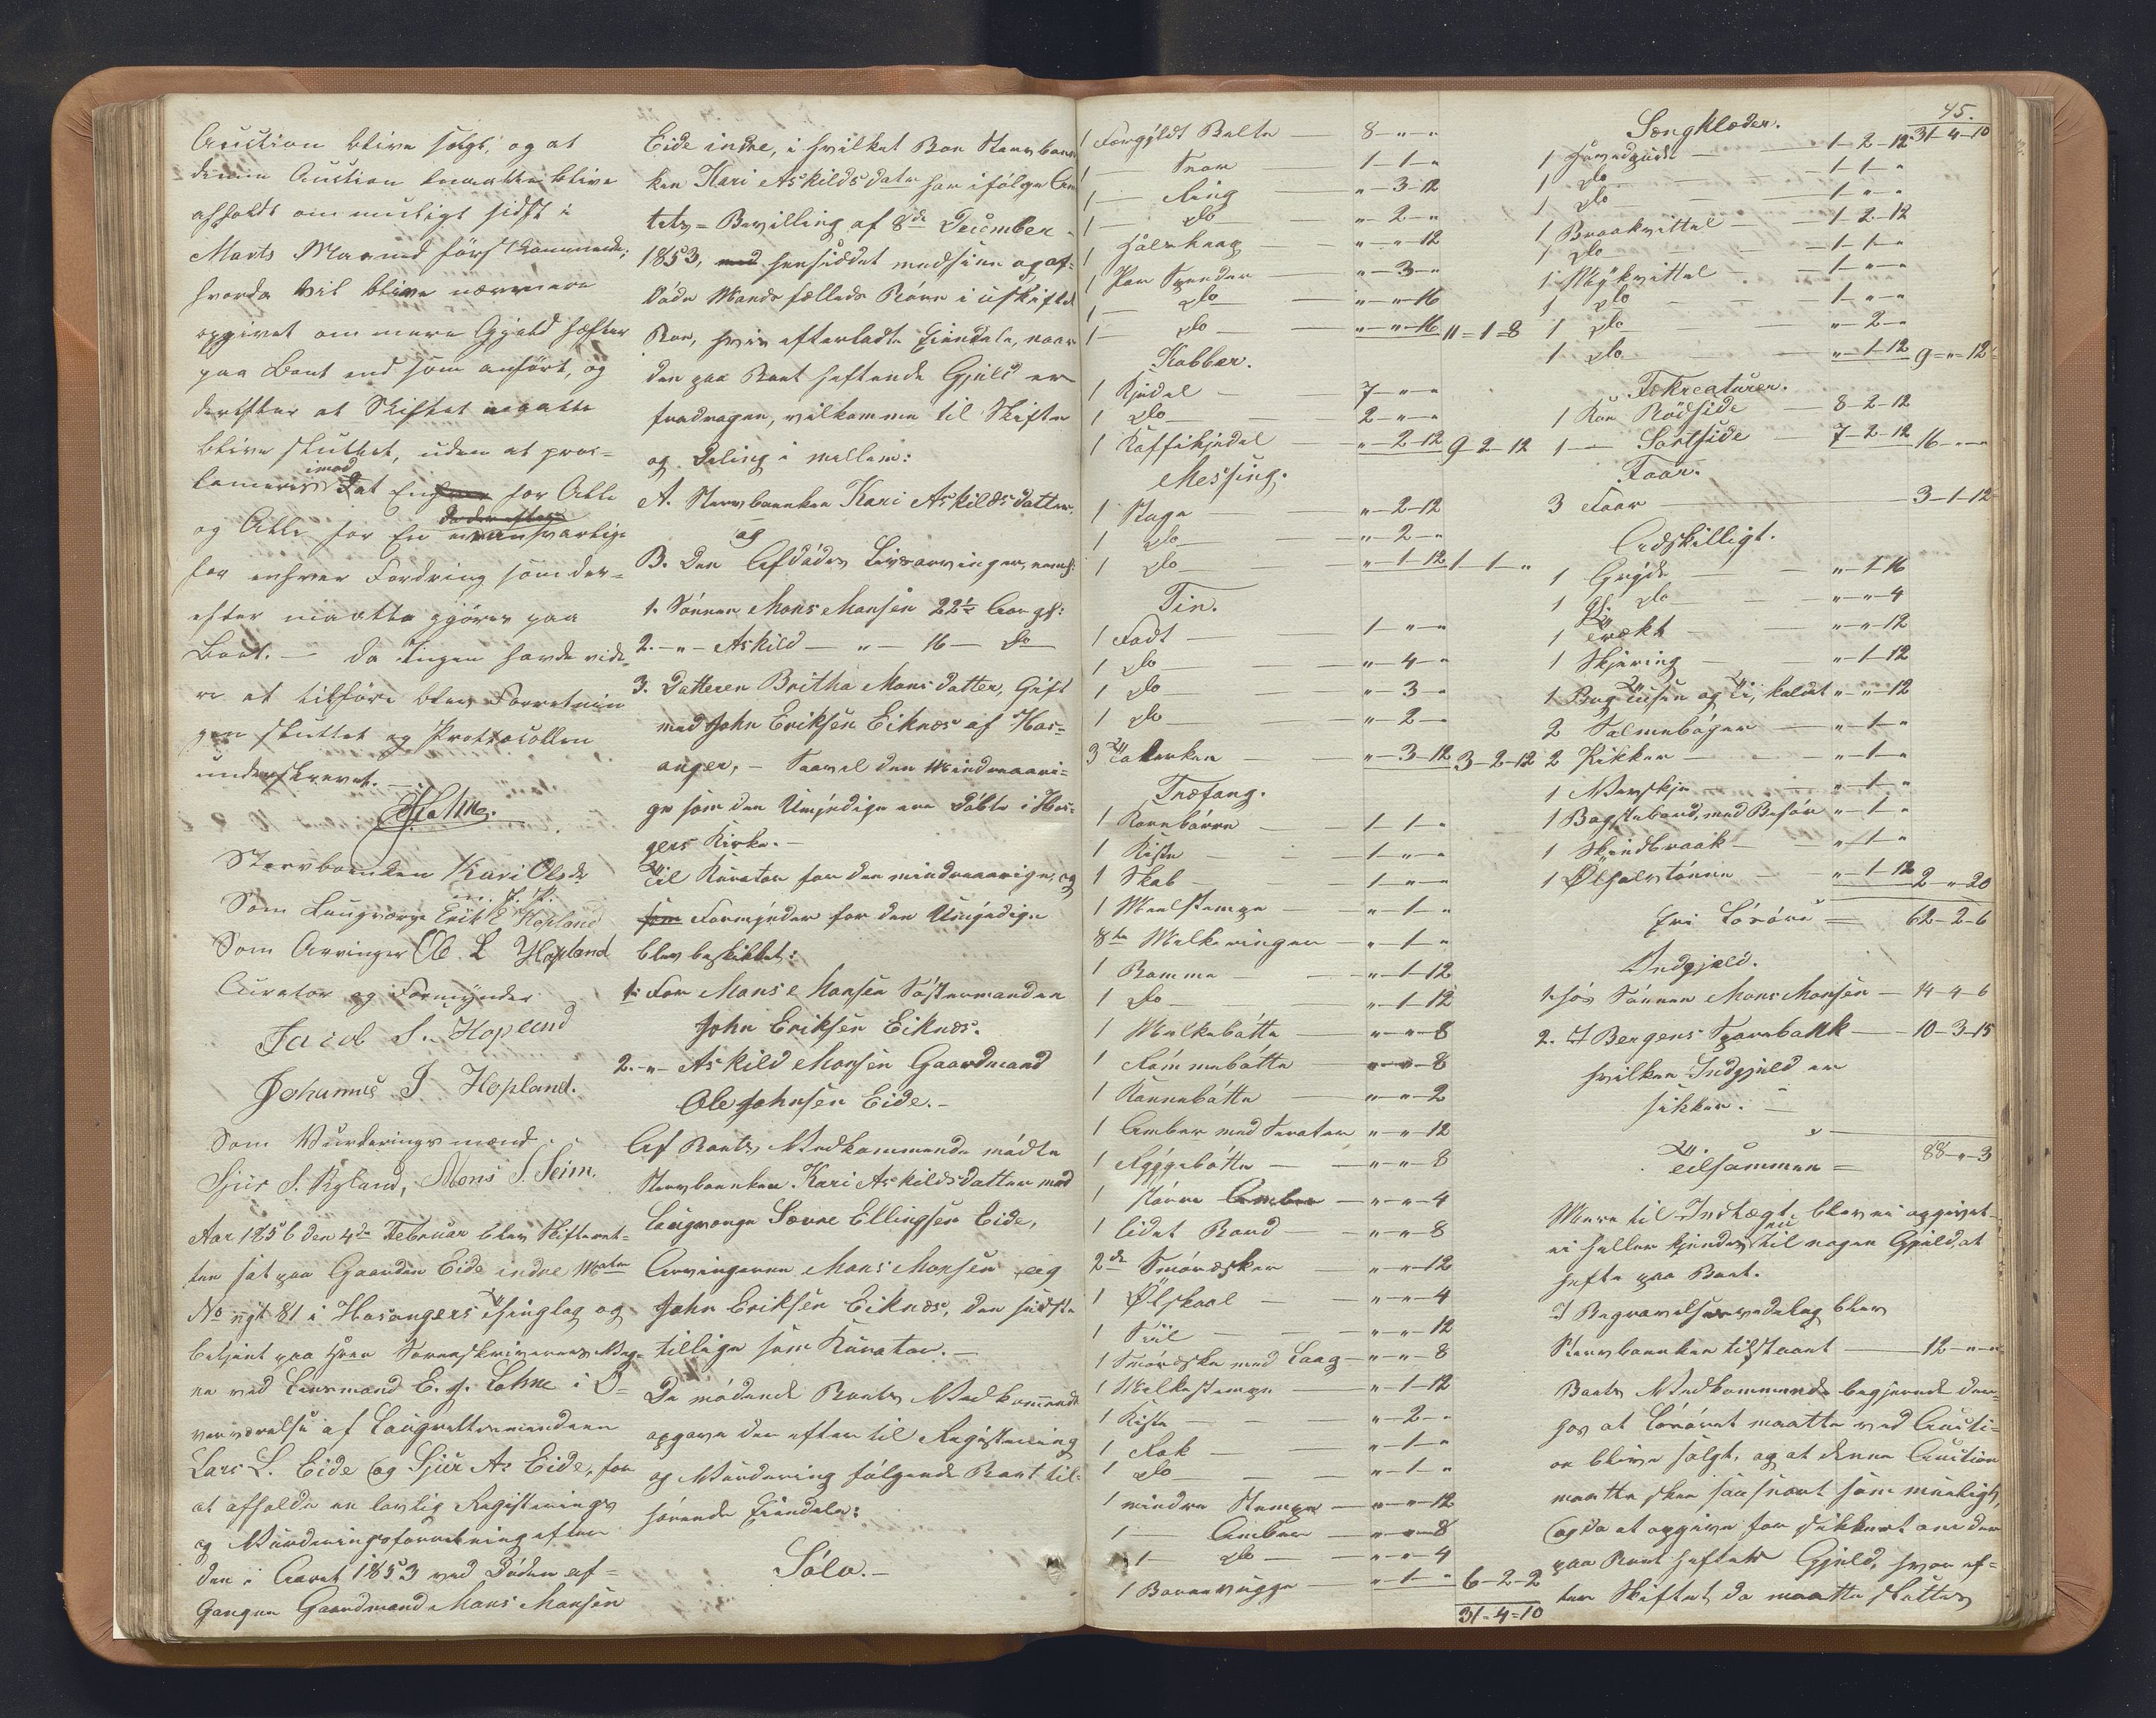 Auction blive solgt, og at
denne Auction maatte blive
afholdt om muligt sidst i
Marts Maaned førstkommende,
hvorda vil blive nærmere
opgivet om mere Gjæld hefter
paa Boet end som anført, og
derefter at Skiftet maatte
blive sluttet, uden at proc-
lameres, imod at En for Alle
og Alle for En er ansvarlige
for enhver Fordring som der-
efter maatte gjøres paa
Boet. — Da Ingen havde vide-
re at tilføre blev Forretnin
gen sluttet og Protocollen
underskrevet. —
Lohne.
Stervboenken Kari Olsdr
m. f. P.
Som Laugværge Erik E Hopland
Som Arvinger Ole L Hopland
Curator og Formynder
Jacob S. Hopland
Johannes J Hopland.
Som Vurderingsmænd
Sjur S. Ryland, Mons S. Seim.
Aar 1856 den 4de Februar blev Skifteret-
ten sat paa Gaarden Eide indre Matr
No nyt 81 i Hosangers Thinglag og
betjent paa Herr Sorenskriverens Veg-
ne ved Lensmand E. J. Lohne i O-
verværelse af Laugrettesmændene
Lars L. Eide og Sjur As Eide, for
at afholde en lovlig Registerings
og Vurderingsforretning efter
den i Aaret 1853 ved Døden af-
gangne Gaardmand Mons Monsen
Eide indre, i hvilket Boe Stervboen
ken Kari Askildsdatter har ifølge Am
tets-Bevilling af 8de December
1853, med hensiddet med sine og af-
døde Mands fælleds Børn i uskiftet
Boe, hvis efterladte Eiendele, naar
den paa Boet heftende Gjæld er
fradragen, vilkomme til Skifte
og Deling i mellem:
A. Stervboenken Kari Askildsdatter.
og
B. Den Afdødes Livsarvinger, neml:
1. Sønnen Mons Monsen 22½ Aar gl:
2. -„- Askild — „ — 16 — Do
3. Datteren Britha Monsdatter, Gift
med John Eriksen Eiknæs af Hos-
anger, — Saavel den Mindreaari-
ge som den Umyndige ere døbte i Hos-
gers Kirke. —
Til Kurator for den mindreaarige, og
som Formynder for den Umyndige
blev beskikket:
1. For Mons Monsen Søstermanden
John Eriksen Eiknæs.
2. -„- Askild Monsen Gaardmand
Ole Johnsen Eide. —
Af Boets Vedkommende mødte
Stervboenken Kari Askildsdatter med
Laugværge Sævre Ellingsen Eide,
Arvingerne Mons Monsen og
John Eriksen Eiknæs, den sidste
tillige som Kurator. —
De mødende Boets Vedkommende
opgave derefter til Registering
og Vurdering følgende Boet til-
hørende Eiendele:
Sølv. —
1 Forgyldt Belte — 8 - „ - „
1 — Snor 1 - 1 - „
1 — Ring „ - 3 - 12
1 — Do „ - 2 - „
1 Halsknap „ - „ - 12
1 Par Spender „ - 3 - „
1 — Do „ - „ - 16
1 — Do „ - „ - 16 11 = 1 = 8
Kobber.
1 Kjedel 7 - „ - „
1 Do 2 - „ - „
1 Kaffikjedel „ - 2 - 12 9 - 2 - 12
Messing.
1 Stage „ - 2 - 12
1 Do „ - 2 - „
1 Do „ - 1 - 12 1 - 1 - „
Tin.
1 Fadt 1 - „ - „
1 Do „ - 4 - „
1 Do „ - 3 - „
1 Do „ - 2 - „
3 Talerken „ - 3 - 12 3 - 2 - 12
Træfang.
1 Kornbørre 1 - 1 - „
1 Kiste 1 - „ - „
1 Skab 1 - „ - „
1 Meelstampe „ - 1 - „
8te Melkeringer „ - 1 - „
1 Bomme „ - 1 - 12
1 Do „ - 1 - 12
1 Melkebøtte „ - „ - 8
1 Rømmebøtte „ - „ - 8
1 Kannebøtte „ - „ - 2
1 Ambar med Traator „ - „ - 12
1 Ryggebøtte „ - „ - 8
1 større Ambar „ - „ - 4
1 lidet Bord „ - „ - 8
2de Smørøsker „ - „ - 12
1 Ølskaal „ - „ - 4
1 Siil „ - „ - 12
1 Smørøske med Laag „ - „ - 8
1 Melkestampe „ - 1 - 12
1 Kiste „ - 2 - „
1 Rok „ - 1 - „
1 Do „ - 1 - „
1 mindre Stampe „ - „ - 12
1 — Ambar „ - „ - 8
1 — Do „ - „ - 4
1 Barnevugge „ - 1 - „ 6 - 2 - 2
31 - 4 - 10
45.
31 - 4 - 10
Sengklæder.
1 Hovedpude 1 - 2 - 12
1 Do 1 - 1 - „
1 Do 1 - „ - „
1 Braakvittel 1 - 2 - 12
1 Do 1 - 1 - „
1 Mykvittel 1 - „ - „
1 Do 1 - „ - „
1 Do „ - 2 - „
1 Do „ - 1 - 12 9 = „ = 12
Fækreaturer.
1 Koe Rødside 8 - 2 - 12
1 — Sortside 7 - 2 - 12 16 - „ - „
Faar.
3 Faar 3 - 1 - 12
Adskilligt.
1 Gryde „ - 1 - 16
1 gl. Do „ - „ - 4
1 Trækt „ - „ - 12
1 Skjæring „ - 1 - 12
„ - „ - 12
2 Salmebøger „ - 1 - „
2 Kikker „ - 1 - „
1 „ - 1 - „
1 Bagstebord, med Befør „ - 1 - „
1 Skindbraak „ - 1 - „
1 Ølhalvtønne „ - 1 - 12 2 - „ - 20
Fri Løsøre = 62 - 2 - 6
Indgjæld.
1. hos Sønnen Mons Monsen — 14 - 4 - 6
2. I Bergens Sparebank — 10 - 3 - 15
hvilken Indgjæld er
sikker. —
Tilsammen = 88 - „ - 3
Mere til Indtægt blev ei opgivet
ei heller kjendes til nogen Gjæld, at
hefte paa Boet.
I Begravelsesvederlag blev
Stervboenken tilstaaet — 12 - „ - „
Boets Vedkommende begjerede der-
hos at Løsøret maatte ved Aucti-
on blive solgt, og at denne Auction
maatte skee saasnart som mueligt,
og da at opgive for sikkert om der
paa Boet heftede Gjæld, hvor ef-
ter Skiftet da maatte sluttes